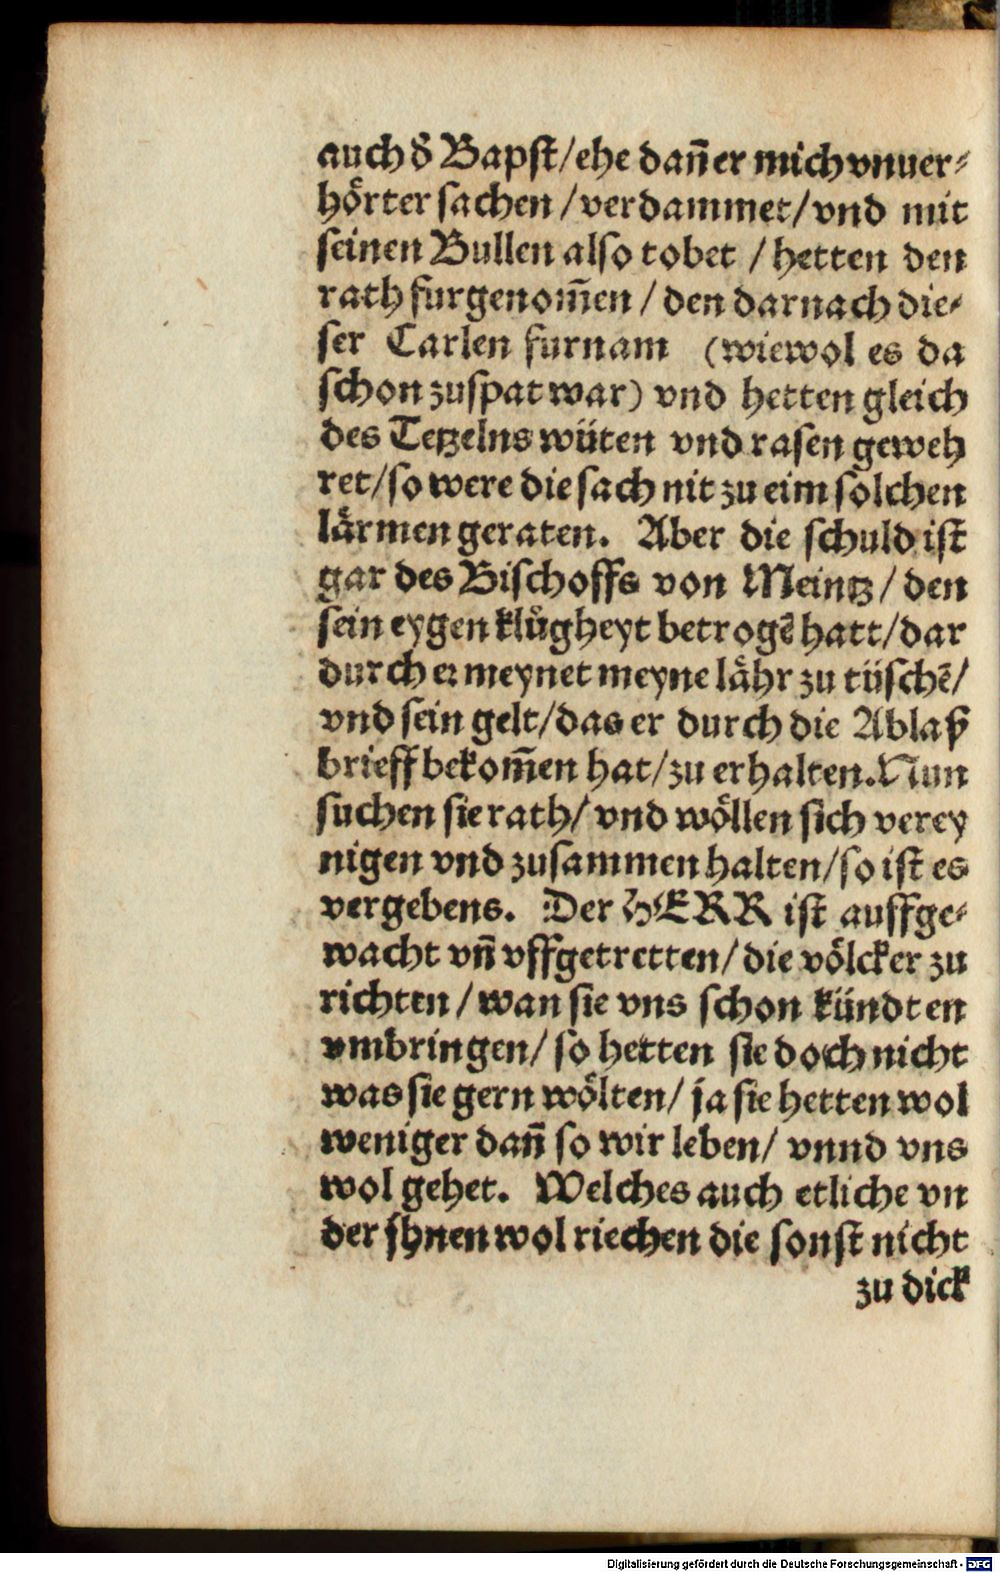 auch d̕ Bapst/ehe dañ er mich vnuer⸗
hoͤrter sachen/verdammet/vnd mit
seinen Bullen also tobet /hetten den
rath furgenom̃en/den darnach die⸗
ser Carlen furnam (wiewol es da
schon zuspat war) vnd hetten gleich
des Tetzelns wüten vnd rasen geweh
ret/so were die sach nit zu eim solchen
laͤrmen geraten. Aber die schuld ist
gar des Bischoffs von Meintz/den
sein eygen kluͦgheyt betrogẽ hatt/dar
durch er meynet meyne laͤhr zu tüschẽ/
vnd sein gelt/das er durch die Ablaß
brieff bekom̃en hat/zu erhalten. Nun
suchen sie rath/vnd woͤllen sich verey
nigen vnd zusammen halten/so ist es
vergebens. Der HERR ist auffge⸗
wacht vñ vffgetretten/die voͤlcker zu
richten/wan sie vns schon kündten
vmbringen/so hetten sie doch nicht
was sie gern woͤlten/ja sie hetten wol
weniger dañ so wir leben/vnnd vns
wol gehet. Welches auch etliche vn
der jhnen wol riechen die sonst nicht
zu dick
Digitalisierung gefördert durch die Deutsche Forschungsgemeinschaft - DFG